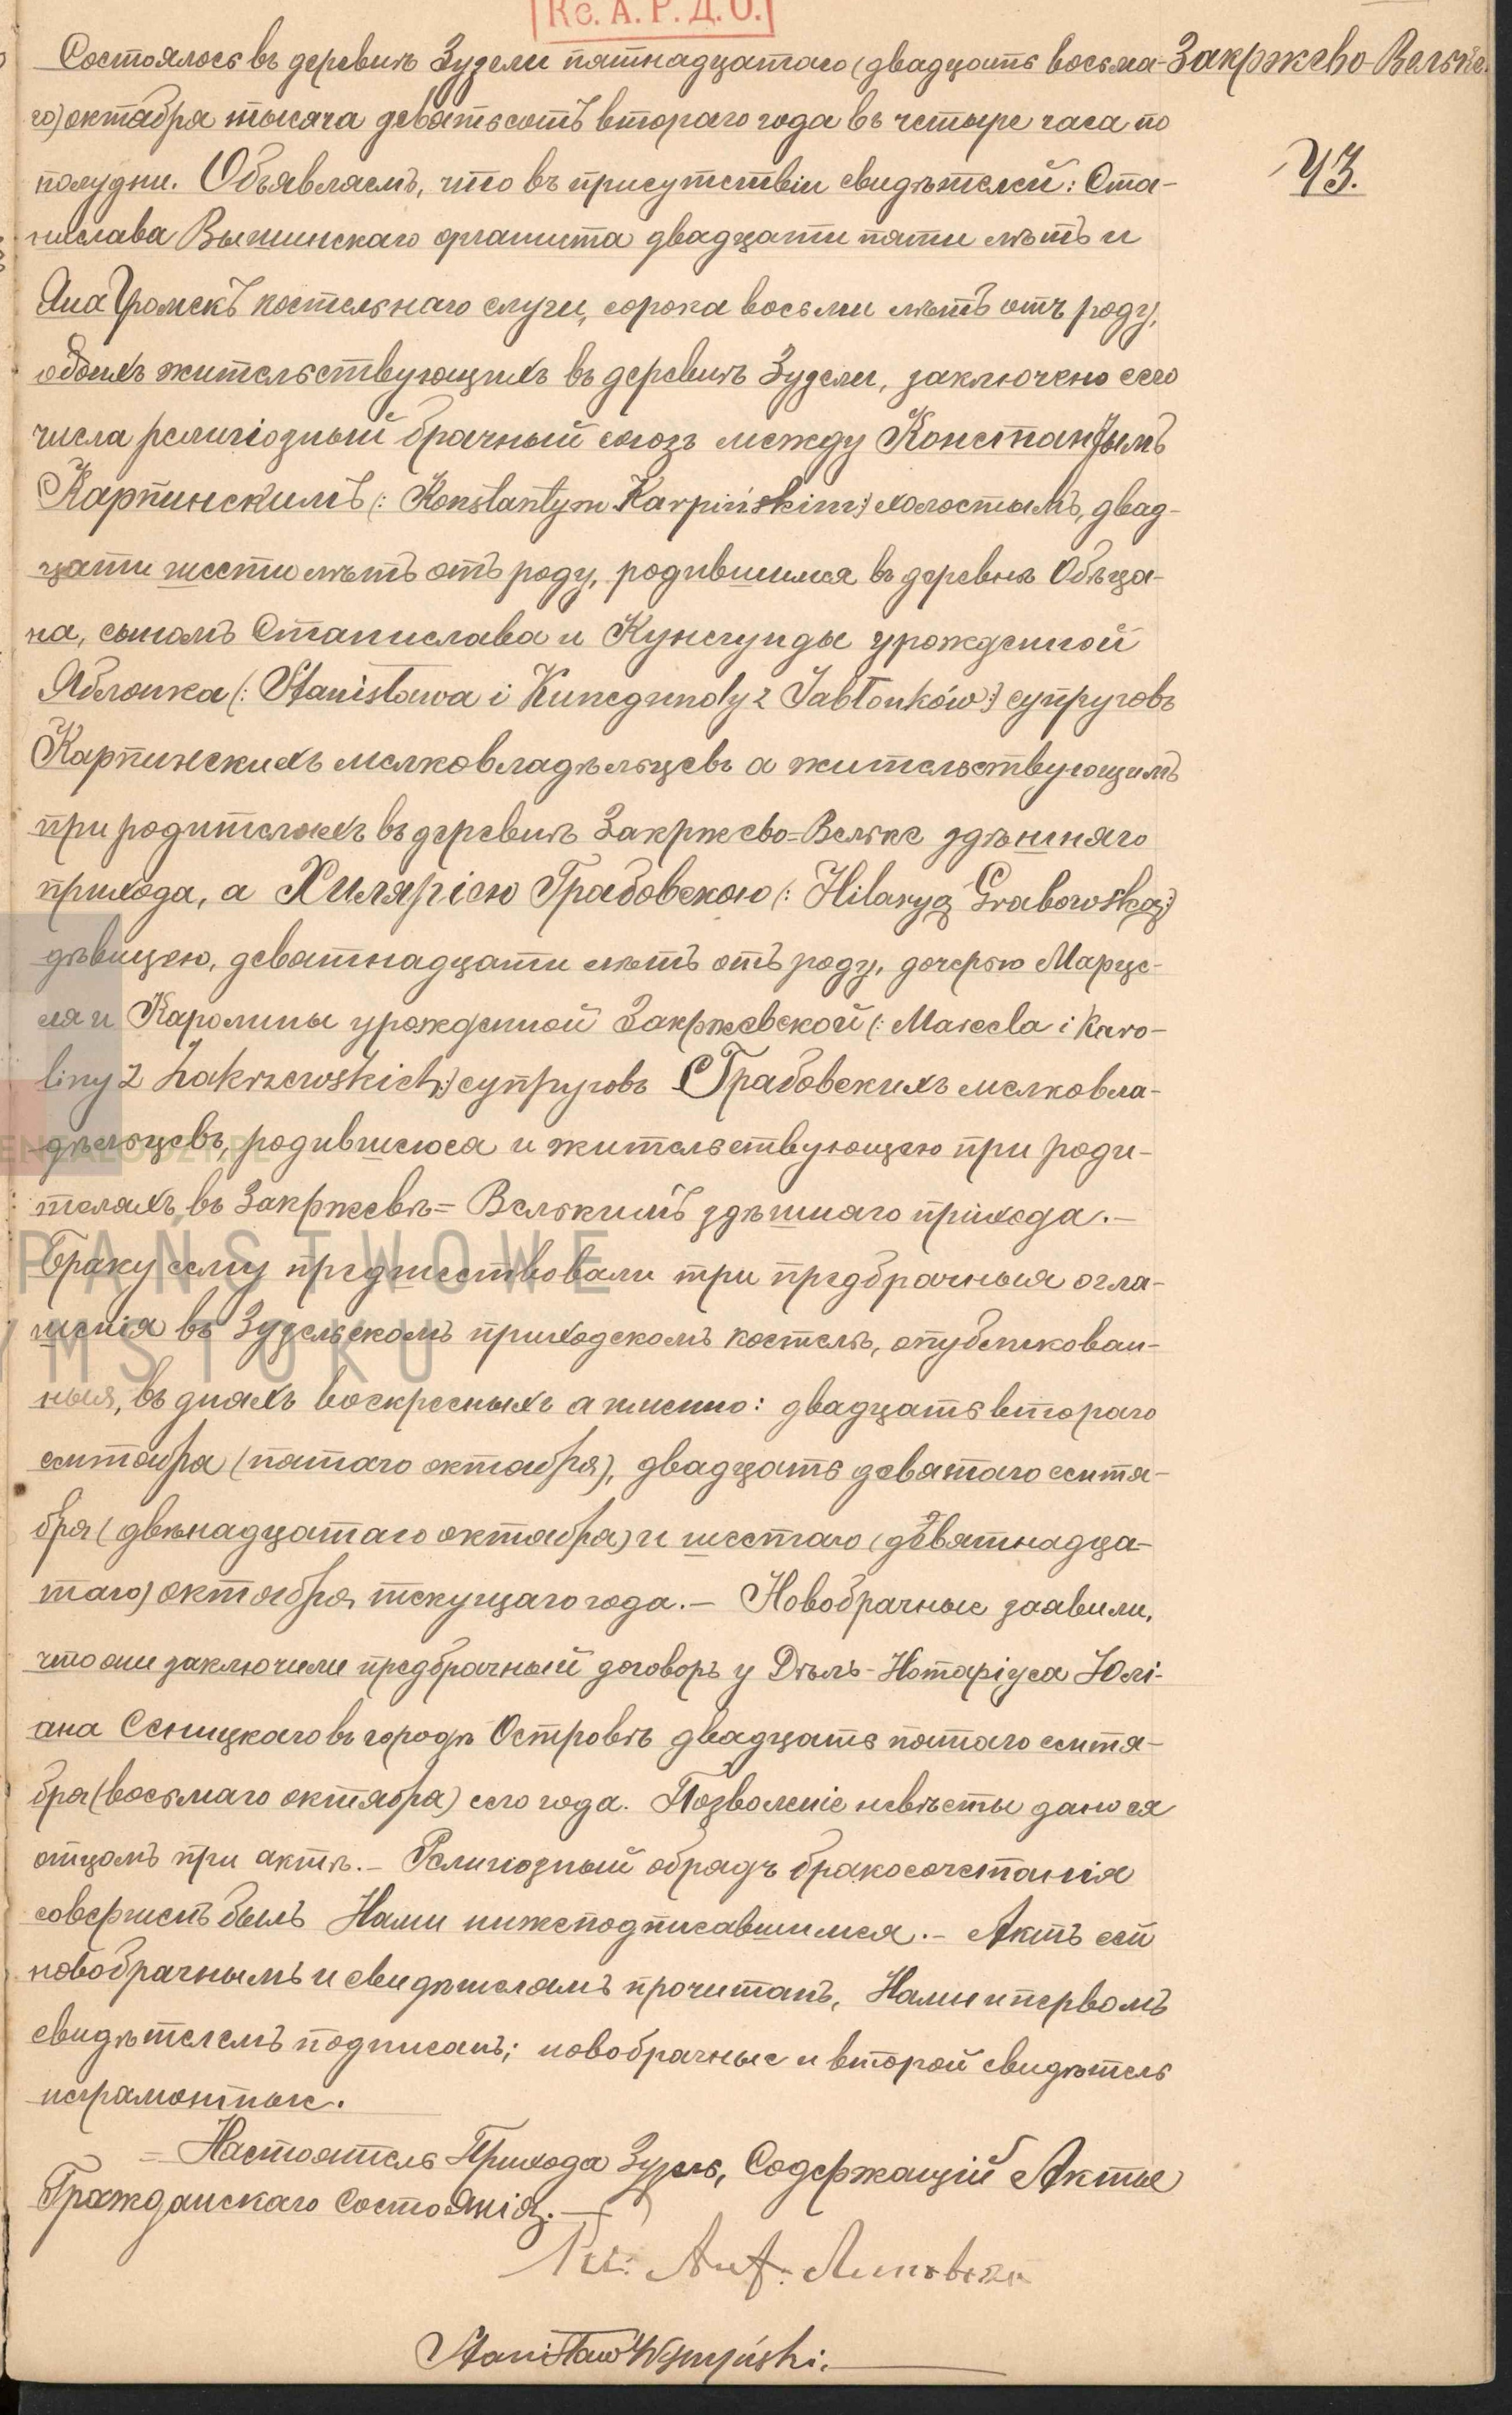 Кс. А. Р. Д. О.
Состоялось въ деревнѣ Зузели пятнадцатаго (двадцать восьма-
Закржево-Вельке.
го) октября тысяча девятьсотъ втораго года въ четыре часа по
43.
полудни. Объявляемъ, что въ присутствіи свидѣтелей: Ста-
нислава Вышинскаго органиста двадцати пяти лѣтъ и
Яна Громекъ костельнаго слуги, сорока восьми лѣтъ отъ роду,
обоихъ жительствующихъ въ деревнѣ Зузели, заключено сего
числа религіозный брачный союзъ между Константымъ
Карпинскимъ (: Konstantym Karpińskim:) холостымъ, двад-
цати шести лѣтъ отъ роду, родившимся въ деревнѣ Обѣца-
на, сыномъ Станислава и Кунегунды урожденной
Яблонка (: Stanisława i Kunegundy z Jabłonków:) супруговъ
Карпинскихъ мелковладѣльцевъ а жительствующимъ
при родителяхъ въ деревнѣ Закржево=Вельке здѣшняго
прихода, а Хиляріею Грабовскою (: Hilaryą Grabowską:)
дѣвицею, девятнадцати лѣтъ отъ роду, дочерью Марце-
ля и Каролины урожденной Закржевской (: Marcela i Karo-
liny z Zakrzewskich:) супруговъ Грабовскихъ мелковла-
дѣльцевъ, родившеюся и жительствующею при роди-
теляхъ въ Закржевѣ=Велькимъ здѣшняго прихода.-
PAŃSTWOWE
Браку сему предшествовали три предбрачныя огла-
шенія въ Зузельскомъ приходскомъ костелѣ, опубликован-
YMSTOKU
ныя, въ дняхъ воскресныхъ а именно: двадцать втораго
сентября (пятаго октября), двадцать девятаго сентя-
бря (двѣнадцатаго октября) и шестаго (девятнадца-
таго) октября текущаго года.- Новобрачные заявили,
что они заключили предбрачный договоръ у Дѣлъ-Нотаріуса Юлі-
ана Сеницкаго въ городѣ Островѣ двадцать пятаго сентя-
бря (восьмаго октября) сего года. Позволеніе невѣсты дано ея
отцомъ при актѣ.- Религіозный обрядъ бракосочетанія
совершенъ былъ Нами нижеподписавшимся.- Актъ сей
новобрачнымъ и свидѣтелямъ прочитанъ, Нами и первомъ
свидѣтелемъ подписанъ; новобрачные и второй свидѣтель
неграмотные.
Настоятель Прихода Зузель, Содержащій Акты
Гражданскаго Состоянія.
Stanisław Wyszyński.